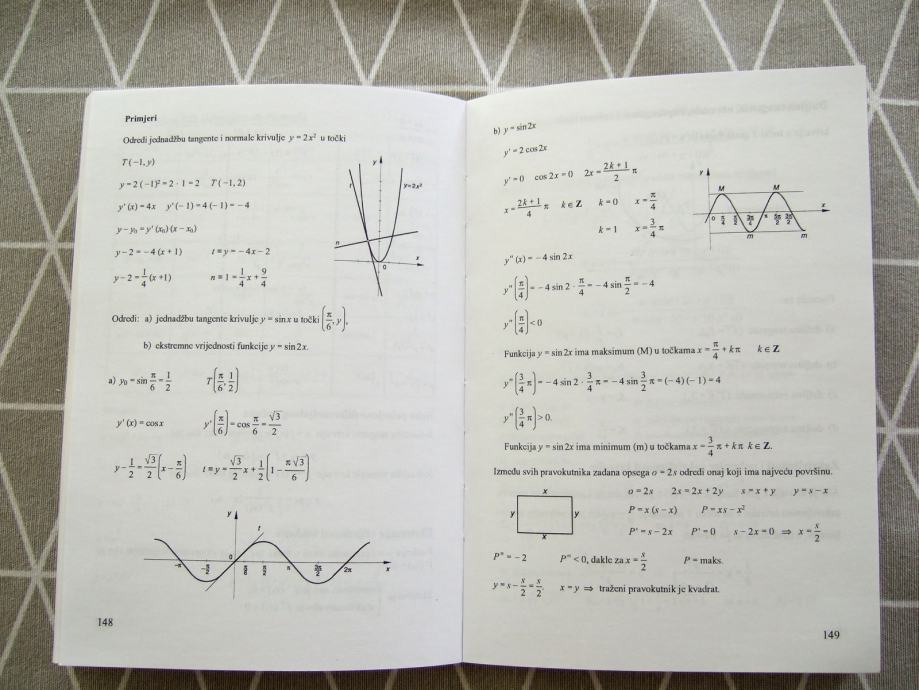 Primjeri
Odredi jednadžbu tangente i normale krivulje y = 2x² u točki
T(−1, y)
y = 2(−1)² = 2 · 1 = 2    T(−1, 2)
y'(x) = 4x    y'(−1) = 4(−1) = −4
y − y₀ = y'(x₀)(x − x₀)
y − 2 = −4(x + 1)    t ≡ y = −4x − 2
y − 2 = 1/4 (x + 1)    n ≡ 1 = 1/4 x + 9/4
y
t
y = 2x²
n
x
0
Odredi: a) jednadžbu tangente krivulje y = sin x u točki (π/6, y),
b) ekstremne vrijednosti funkcije y = sin 2x.
a) y₀ = sin π/6 = 1/2    T(π/6, 1/2)
y'(x) = cos x    y'(π/6) = cos π/6 = √3/2
y − 1/2 = √3/2 (x − π/6)    t ≡ y = √3/2 x + 1/2 (1 − π√3/6)
y
t
0
−π    −π/2    π/6    π/2    π    3π/2    2π    x
148
b) y = sin 2x
y' = 2 cos 2x
y' = 0    cos 2x = 0    2x = (2k + 1)/2 π
x = (2k + 1)/4 π    k ∈ Z    k = 0    x = π/4
k = 1    x = 3/4 π
y
M    M
0    π/4    π/2    3π/4    π    x
m    m
y"(x) = −4 sin 2x
y"(π/4) = −4 sin 2 · π/4 = −4 sin π/2 = −4
y"(π/4) < 0
Funkcija y = sin 2x ima maksimum (M) u točkama x = π/4 + kπ    k ∈ Z
y"(3/4 π) = −4 sin 2 · 3/4 π = −4 sin 3/2 π = (−4)(−1) = 4
y"(3/4 π) > 0.
Funkcija y = sin 2x ima minimum (m) u točkama x = 3/4 π + kπ  k ∈ Z.
Između svih pravokutnika zadana opsega o = 2s odredi onaj koji ima najveću površinu.
x
y    y
x
o = 2s    2s = 2x + 2y    s = x + y    y = s − x
P = x(s − x)    P = xs − x²
P' = s − 2x    P' = 0    s − 2x = 0 ⇒ x = s/2
P" = −2    P" < 0, dakle za x = s/2    P = maks.
y = s − s/2 = s/2,    x = y ⇒ traženi pravokutnik je kvadrat.
149